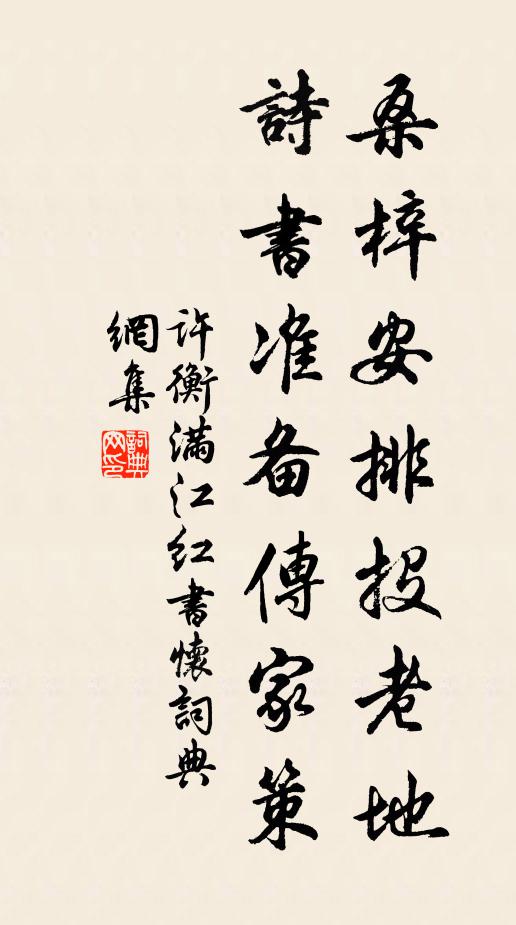 桑梓安排投老地
詩書准备傳家策
许衡滿江红書懷詞典
網集
詞典网印